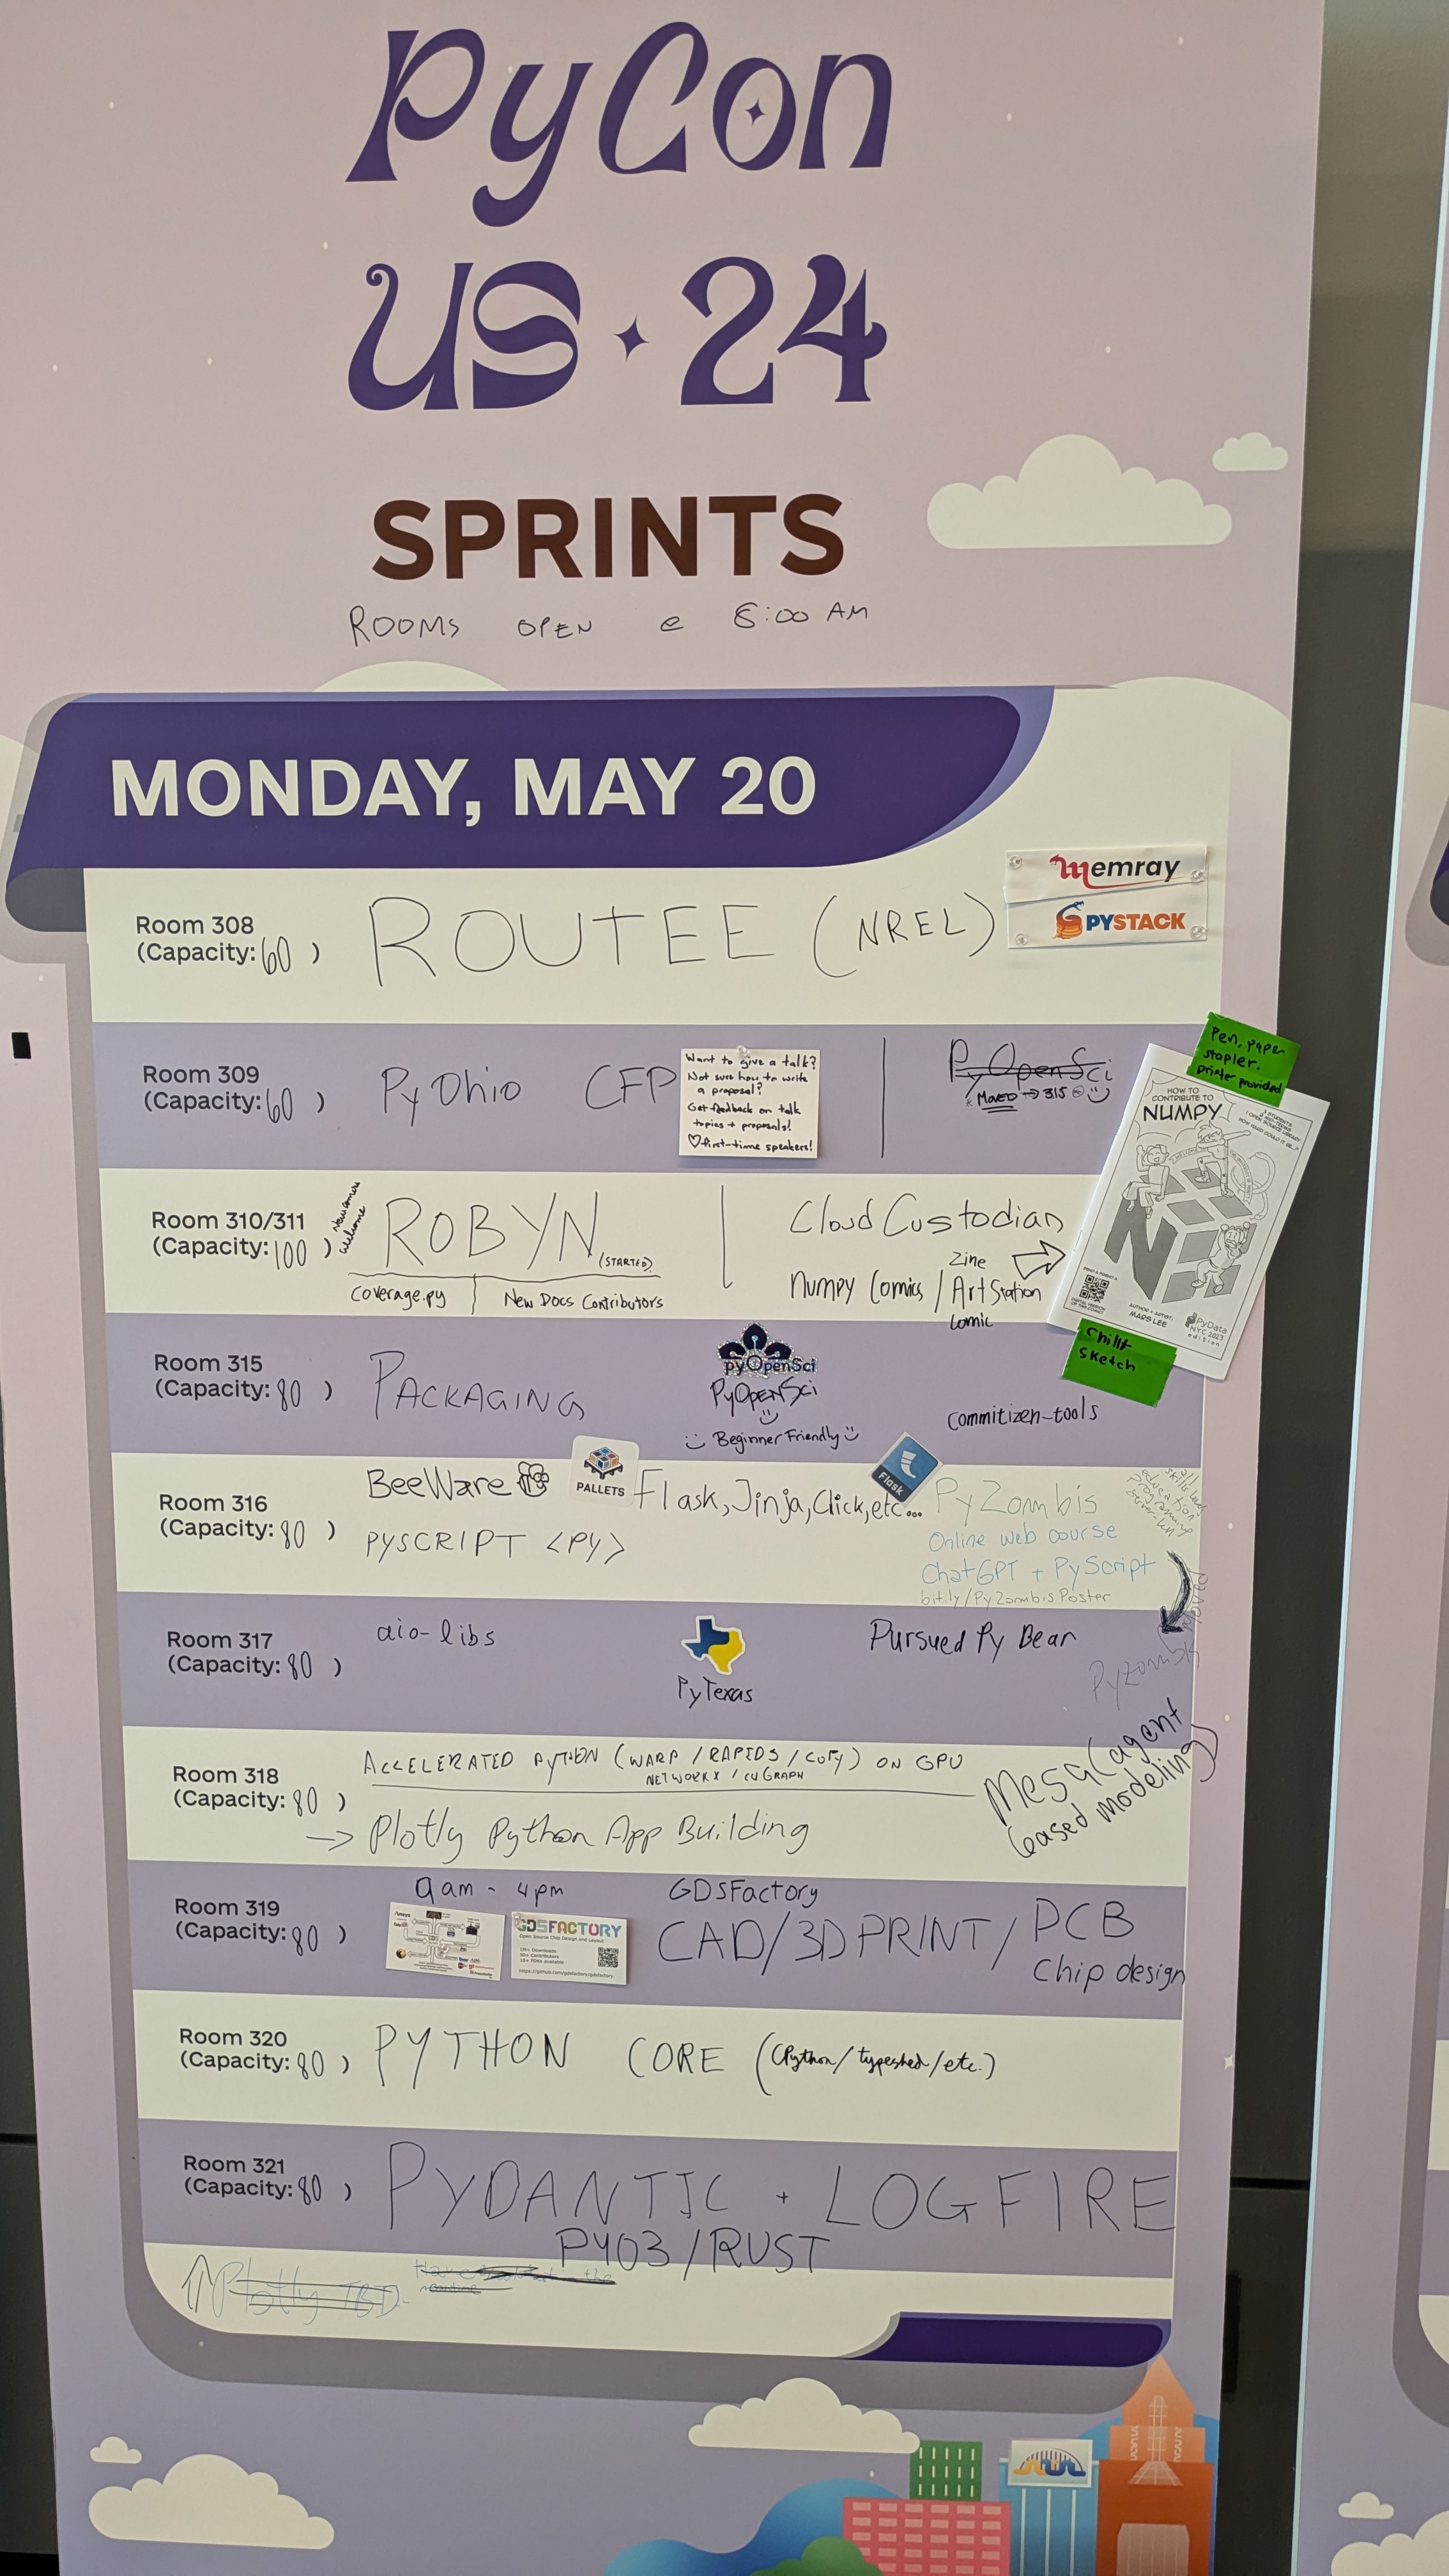 PyCon
US 24
SPRINTS
ROOMS OPEN @ 8:00 AM
MONDAY, MAY 20
Room 308
(Capacity: 60 )
ROUTEE (NREL)
memray
PYSTACK
Room 309
(Capacity: 60 )
PyOhio CFP
Want to give a talk?
Not sure how to write
a proposal?
Get feedback on talk
topics + proposals!
♡ first-time speakers!
PyOpenSci
* MOVED → 315
Pen, paper
stapler,
printer provided
HOW TO
CONTRIBUTE TO
NUMPY
AUTHOR + ARTIST:
MARS LEE
PyData
NYC 2023
edition
Chill +
Sketch
Room 310/311
(Capacity: 100 )
Newcomers
welcome
ROBYN (STARTED)
coverage.py | New Docs Contributors
Cloud Custodian
Numpy Comics / Art Station
Zine
Comic
Room 315
(Capacity: 80 )
PACKAGING
pyOpenSci
PyOPENSci
Beginner Friendly
commitizen-tools
Room 316
(Capacity: 80 )
BeeWare
PYSCRIPT <PY>
PALLETS
Flask, Jinja, Click, etc...
Flask
PyZombis
Online web course
ChatGPT + PyScript
bit.ly/PyZombisPoster
Room 317
(Capacity: 80 )
aio-libs
PyTexas
Pursued Py Bear
moved
Pyzombis
Room 318
(Capacity: 80 )
ACCELERATED PYTHON (WARP / RAPIDS / CUPY) ON GPU
NETWORKX / CUGRAPH
→ Plotly Python App Building
Mesa (agent
based modeling)
Room 319
(Capacity: 80 )
9am - 4pm
GDSFACTORY
Open Source Chip Design and Layout
https://github.com/gdsfactory/gdsfactory
GDSFactory
CAD/3D PRINT/ PCB
Chip design
Room 320
(Capacity: 80 )
PYTHON CORE (CPython/typeshed/etc.)
Room 321
(Capacity: 80 )
PYDANTIC + LOGFIRE
PYO3/RUST
Plotly TBD